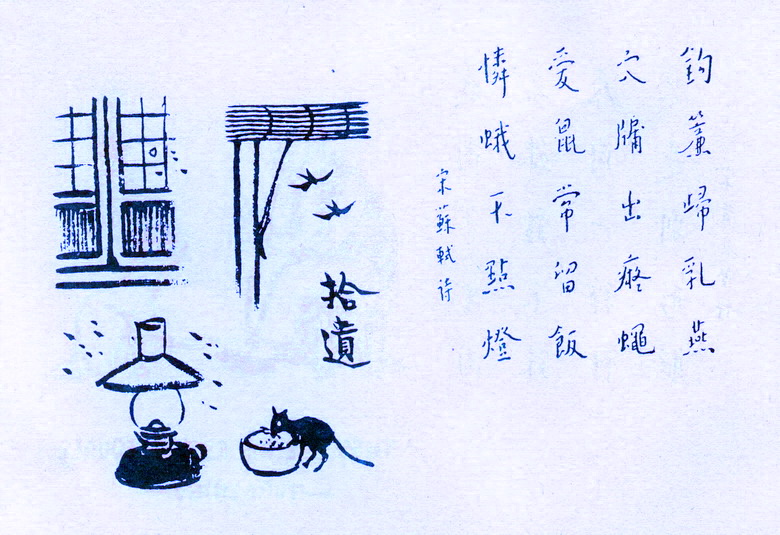 鈎簾歸乳燕
穴牖出癡蠅
愛鼠常留飯
憐蛾不點燈
宋蘇軾詩
拾遺